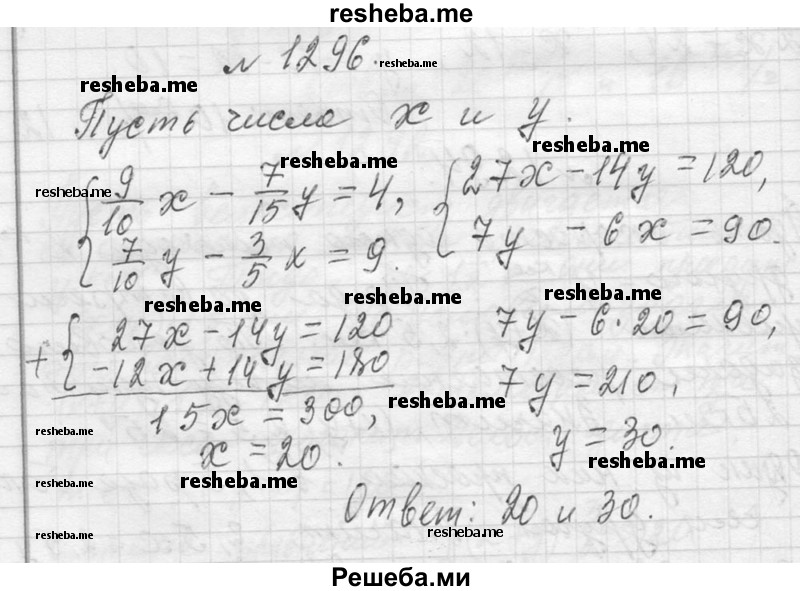 resheba.me
№ 1296. resheba.me
resheba.me
Пусть числа x и y.
resheba.me resheba.me
resheba.me
{ 9/10 x − 7/15 y = 4, { 27x − 14y = 120,
7/10 y − 3/5 x = 9. 7y − 6x = 90.
resheba.me resheba.me resheba.me
+ { 27x − 14y = 120 7y − 6·20 = 90,
−12x + 14y = 180 7y = 210,
resheba.me
15x = 300, y = 30.
resheba.me
x = 20. resheba.me
resheba.me resheba.me
Ответ: 20 и 30.
resheba.me resheba.me
Решеба.ми